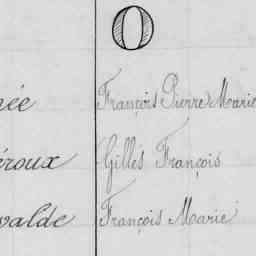 O
née François Pierre Marie
éroux Gilles François
valde François Marie